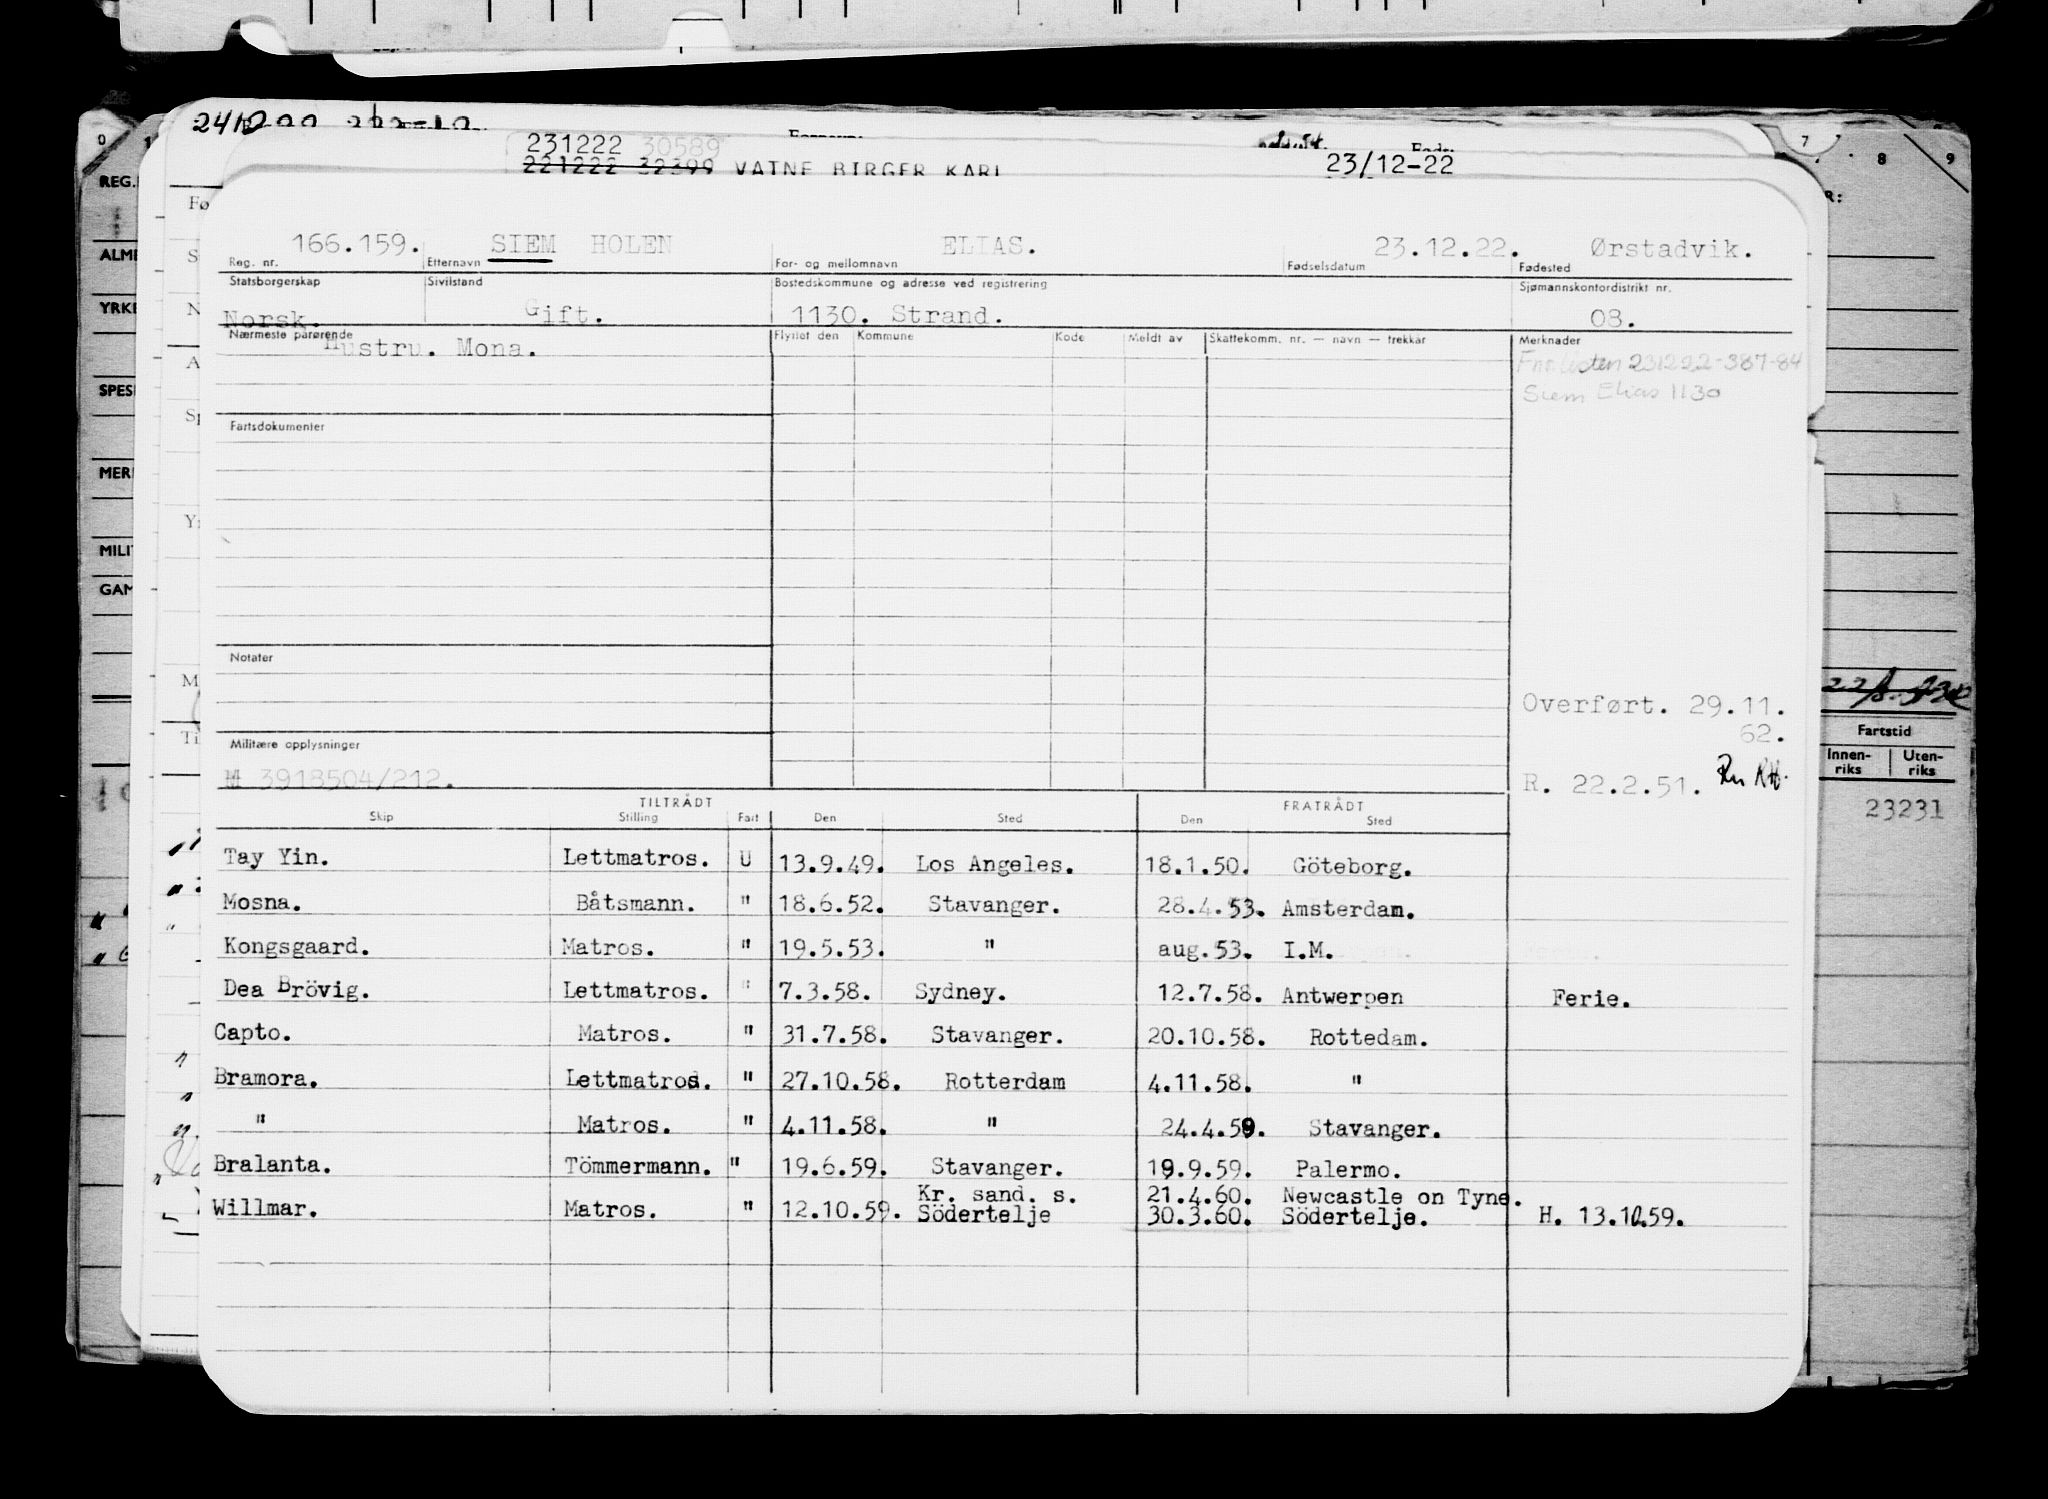 0 1 7 8 9
231222 30589 Fornavn:
221222 32399 VATNE BIRGER KARL 23/12-22
REG.
ALME
YRKE
SPESI
MERI
MILIT
GAM
166.159. SIEM HOLEN ELIAS. 23.12.22. Ørstadvik.
Reg. nr. Etternavn For- og mellomnavn Fødselsdatum Fødested
Statsborgerskap Sivilstand Bostedskommune og adresse ved registrering Sjømannskontordistrikt nr.
Norsk. Gift. 1130. Strand. 08.
Nærmeste pårørende Flyttet den Kommune Kode Meldt av Skattekomm. nr. — navn — trekkår Merknader
Hustru. Mona.
Fnr. listen 231222-387-84
Siem Elias 1130
Fartsdokumenter
Notater
Overført. 29.11.
62.
Militære opplysninger
M 3918504/212.
R. 22.2.51.
Fartstid
Innen-riks Uten-riks
23231
TILTRÅDT FRATRÅDT
Skip Stilling Fart Den Sted Den Sted
Tay Yin. Lettmatros. U 13.9.49. Los Angeles. 18.1.50. Göteborg.
Mosna. Båtsmann. " 18.6.52. Stavanger. 28.4.53. Amsterdam.
Kongsgaard. Matros. " 19.5.53. " aug.53. I.M.
Dea Brövig. Lettmatros. " 7.3.58. Sydney. 12.7.58. Antwerpen Ferie.
Capto. Matros. " 31.7.58. Stavanger. 20.10.58. Rottedam.
Bramora. Lettmatros. " 27.10.58. Rotterdam 4.11.58. "
" Matros. " 4.11.58. " 24.4.59. Stavanger.
Bralanta. Tömmermann. " 19.6.59. Stavanger. 19.9.59. Palermo.
Kr. sand. s. 21.4.60. Newcastle on Tyne.
Willmar. Matros. " 12.10.59. Södertelje 30.3.60. Södertelje. H. 13.10.59.